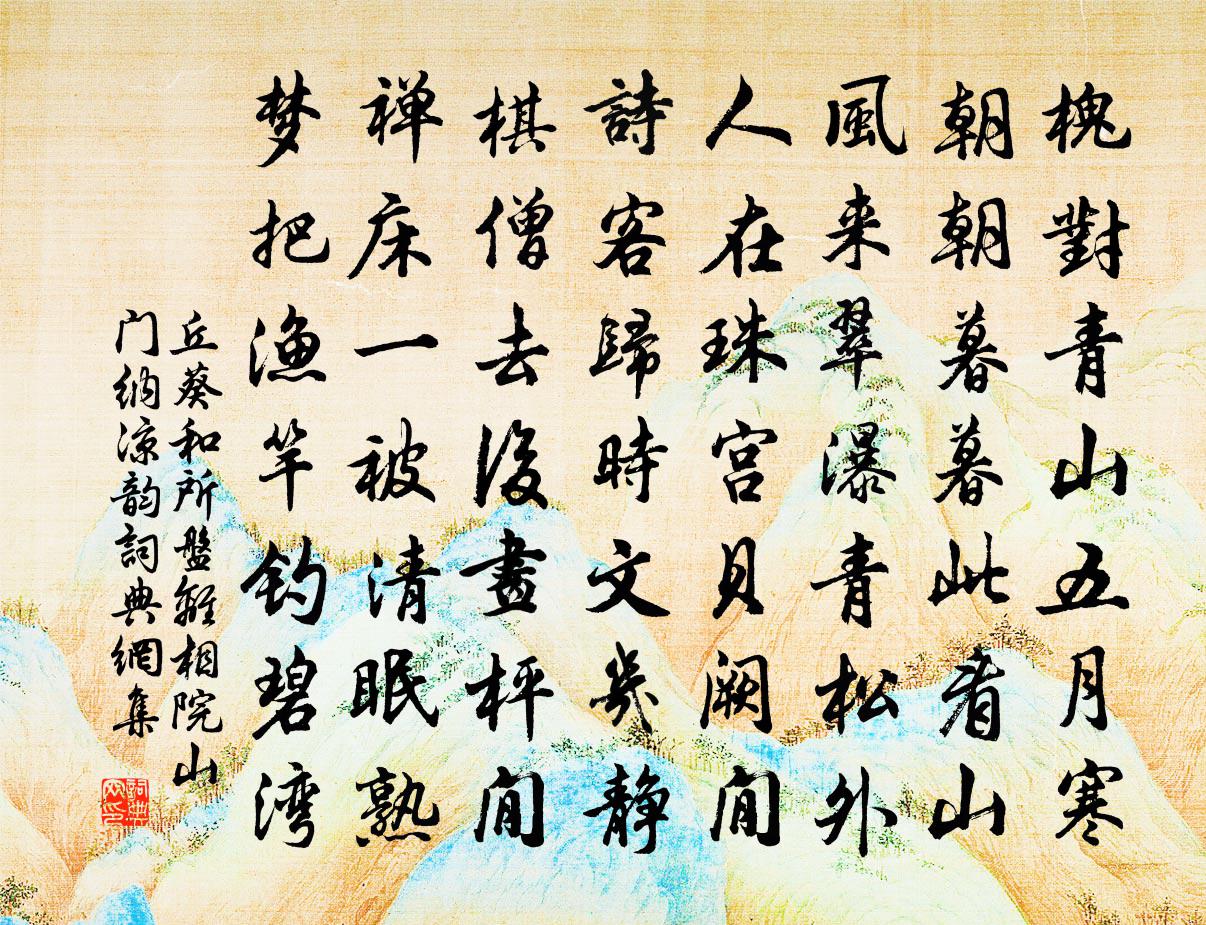 槐對青山五月寒
朝朝暮暮此看山
風来翠瀑青松外
人在珠宫貝阙间
詩客歸時文幾静
棋僧去後畫枰间
禅床一被清眠熟
梦把渔竿钓碧湾
丘葵和所盤雞相院山
门纳涼韵詞典網集